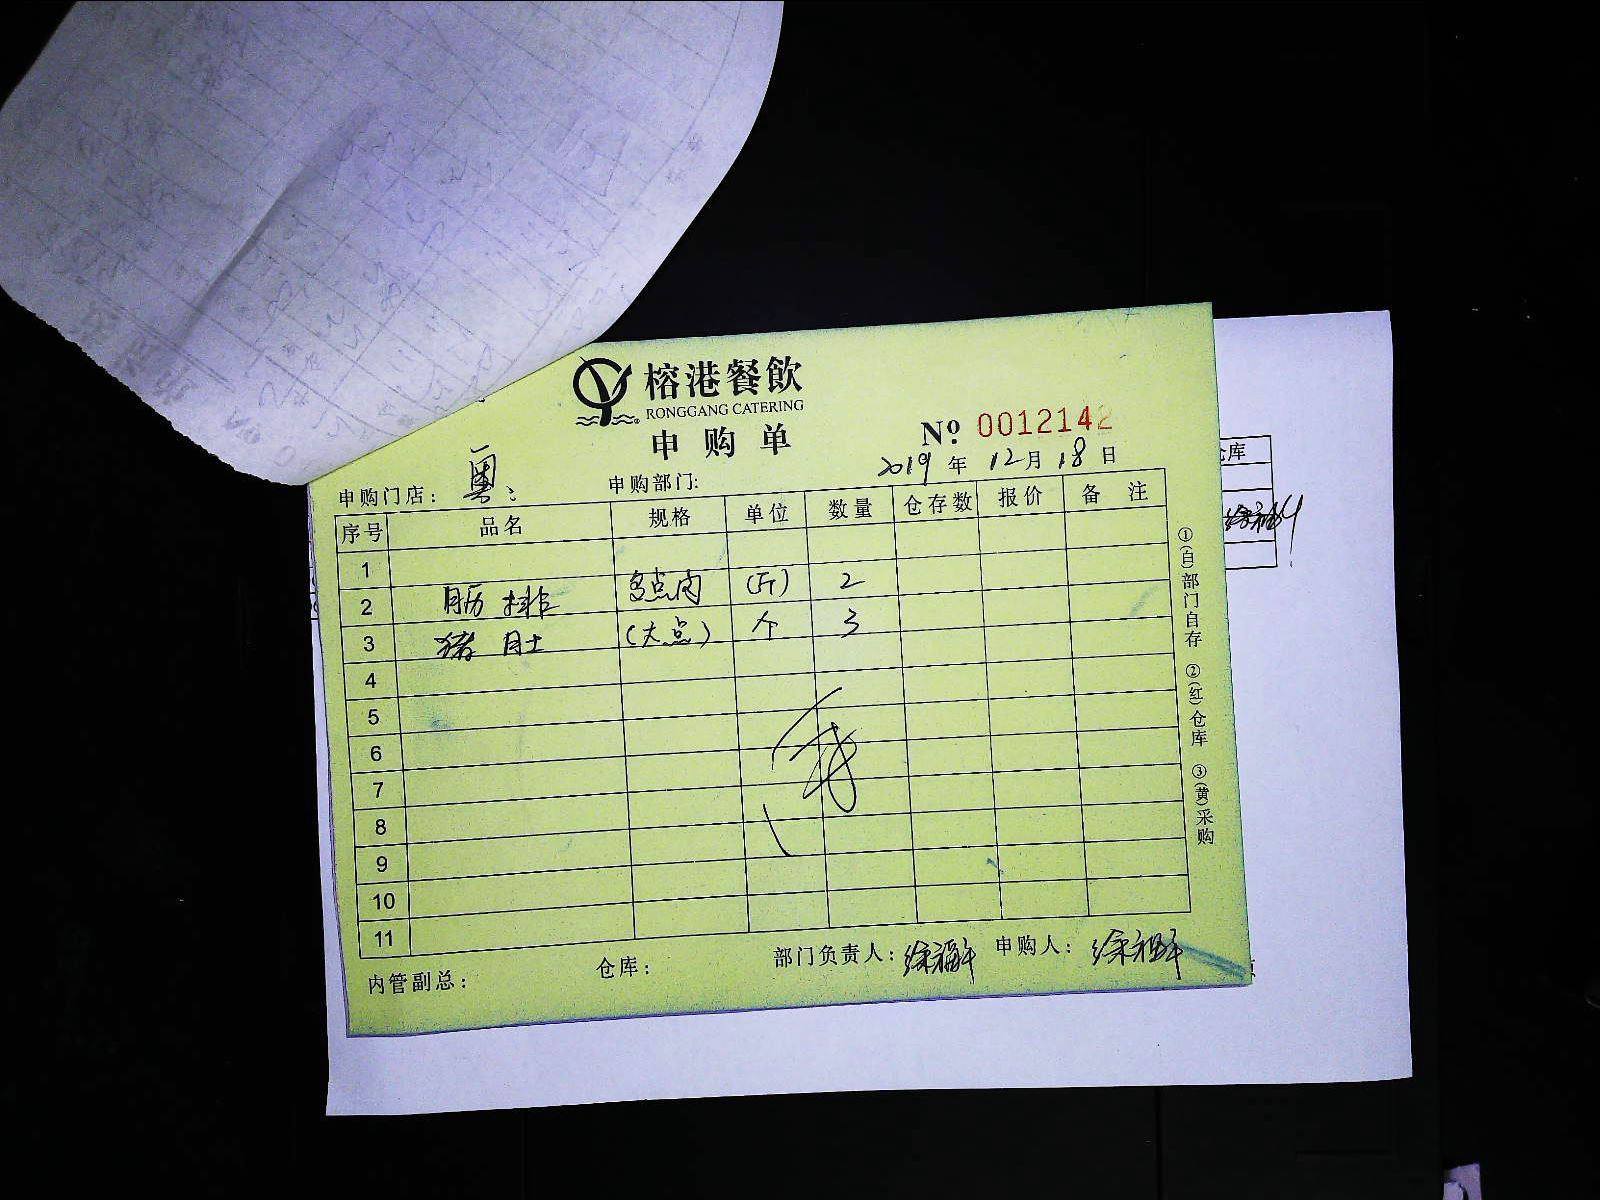 榕港餐飲
RONGGANG CATERING
申购单
№ 0012142
2019年12月18日
申购门店： 申购部门:
序号 品名 规格 单位 数量 仓存数 报价 备注
1
2 肋排 多点肉 (斤) 2
3 猪肚 (大点) 个 3
4
5
6
7
8
9
10
11
内管副总： 仓库： 部门负责人： 申购人：
①(白)部门自存 ②(红)仓库 ③(黄)采购
仓库